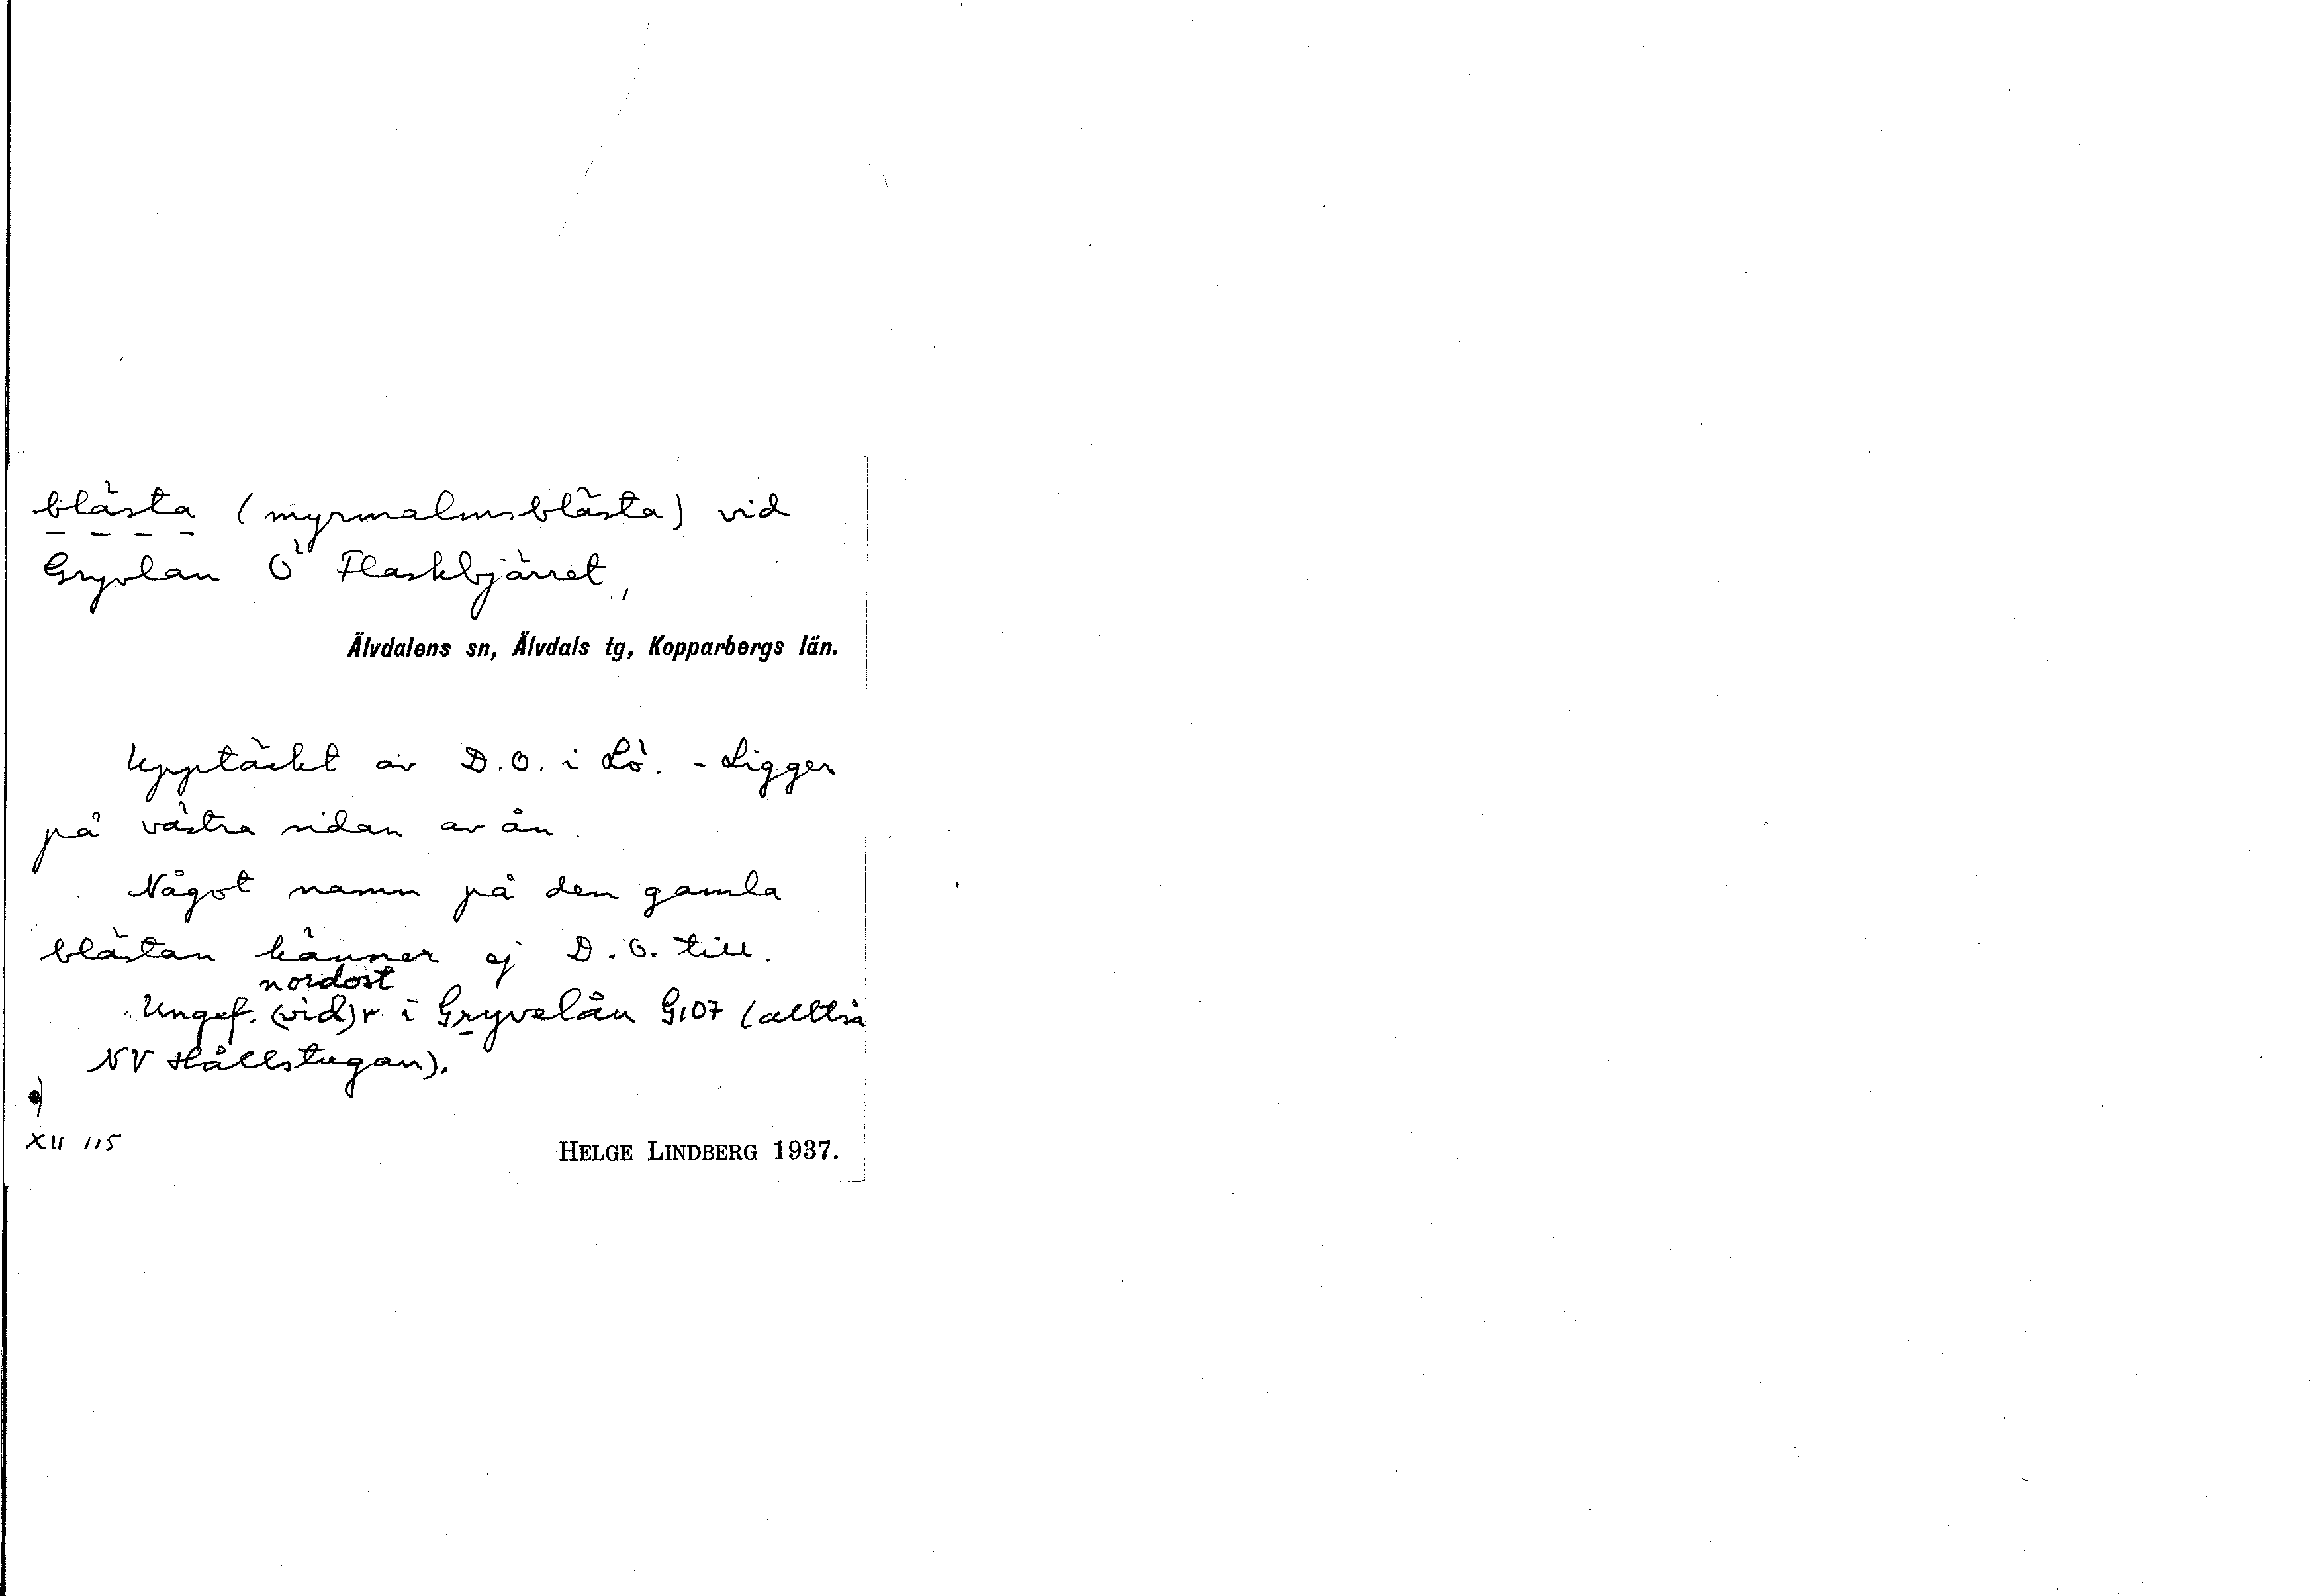 blästa (myrmalmsblästa) vid
Gryvlan Ö Flaskbjärret,
Älvdalens sn, Älvdals tg, Kopparbergs län.
Upptäckt av D.O. i Lö. - Ligger
på västra sidan av ån.
Något namn på den gamla
blästan känner ej D.O. till.
nordost
Ungef. (vid) r i Gryvelån G107 (alltså
NV Hållstugan).
XII 115
HELGE LINDBERG 1937.